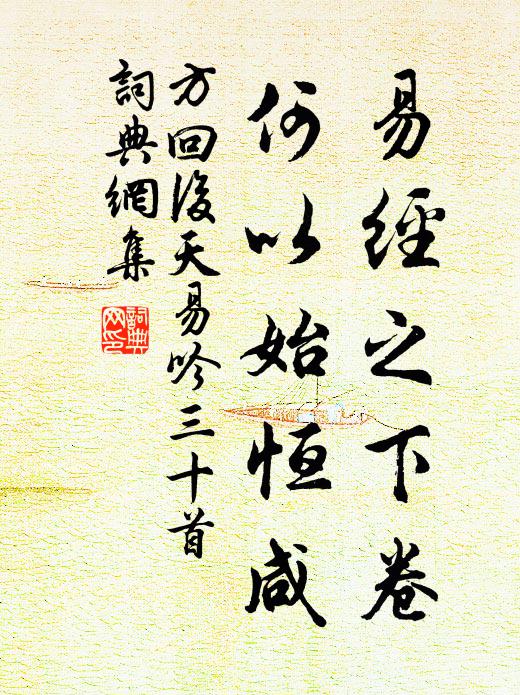 易經之下卷
何以始恒咸
方回後天易吟三十首
詞典網集
詞典網印